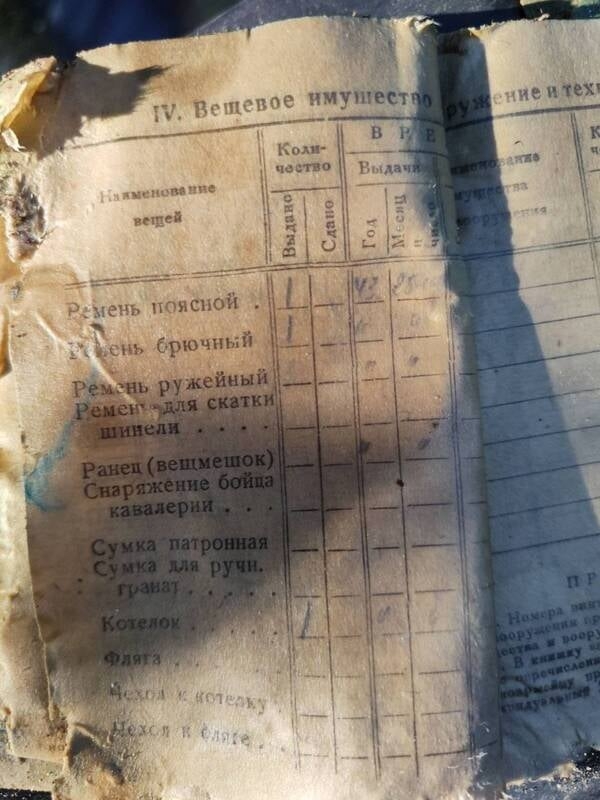 IV. Вещевое имущество
Наименование
вещей
Коли-
чество
В Р Е
Выдачи
Выдано
Сдано
Год
Месяц
и
число
Ремень поясной . 1 43
Ремень брючный 1 "
Ремень ружейный " "
Ремень для скатки
шинели . . . .
Ранец (вещмешок) " "
Снаряжение бойца
кавалерии . . .
Сумка патронная
Сумка для ручн.
гранат . . . . .
Котелок . . . . . 1 " "
Фляга . . . . .
Чехол к котелку .
Чехол к фляге . .
ружение и техн
именование
мущества
вооружения
К
ч
П Р
Номера винт
вооружения пр
В книжку
перечисленно